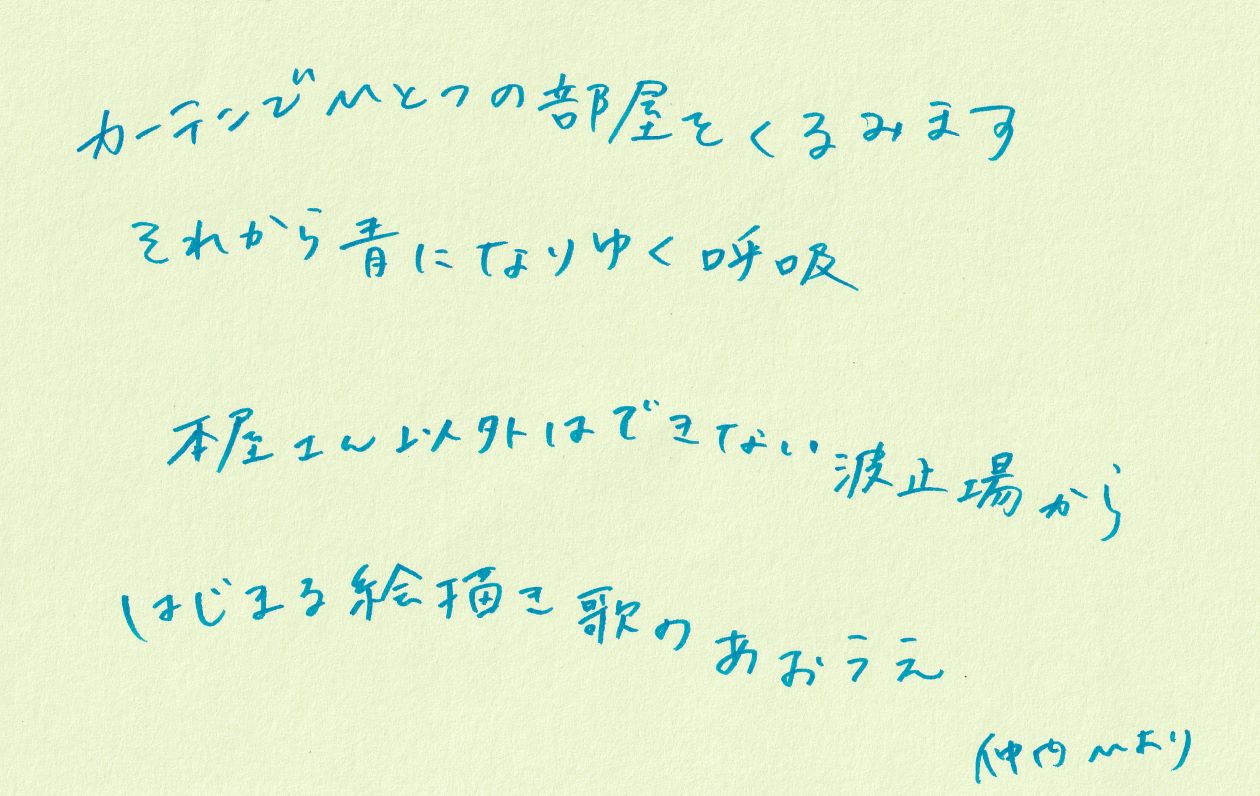 カーテンでひとつの部屋をくるみます
それから青になりゆく呼吸
本屋さん以外はできない波止場から
はじまる絵描き歌のあおうえ
仲内ひより